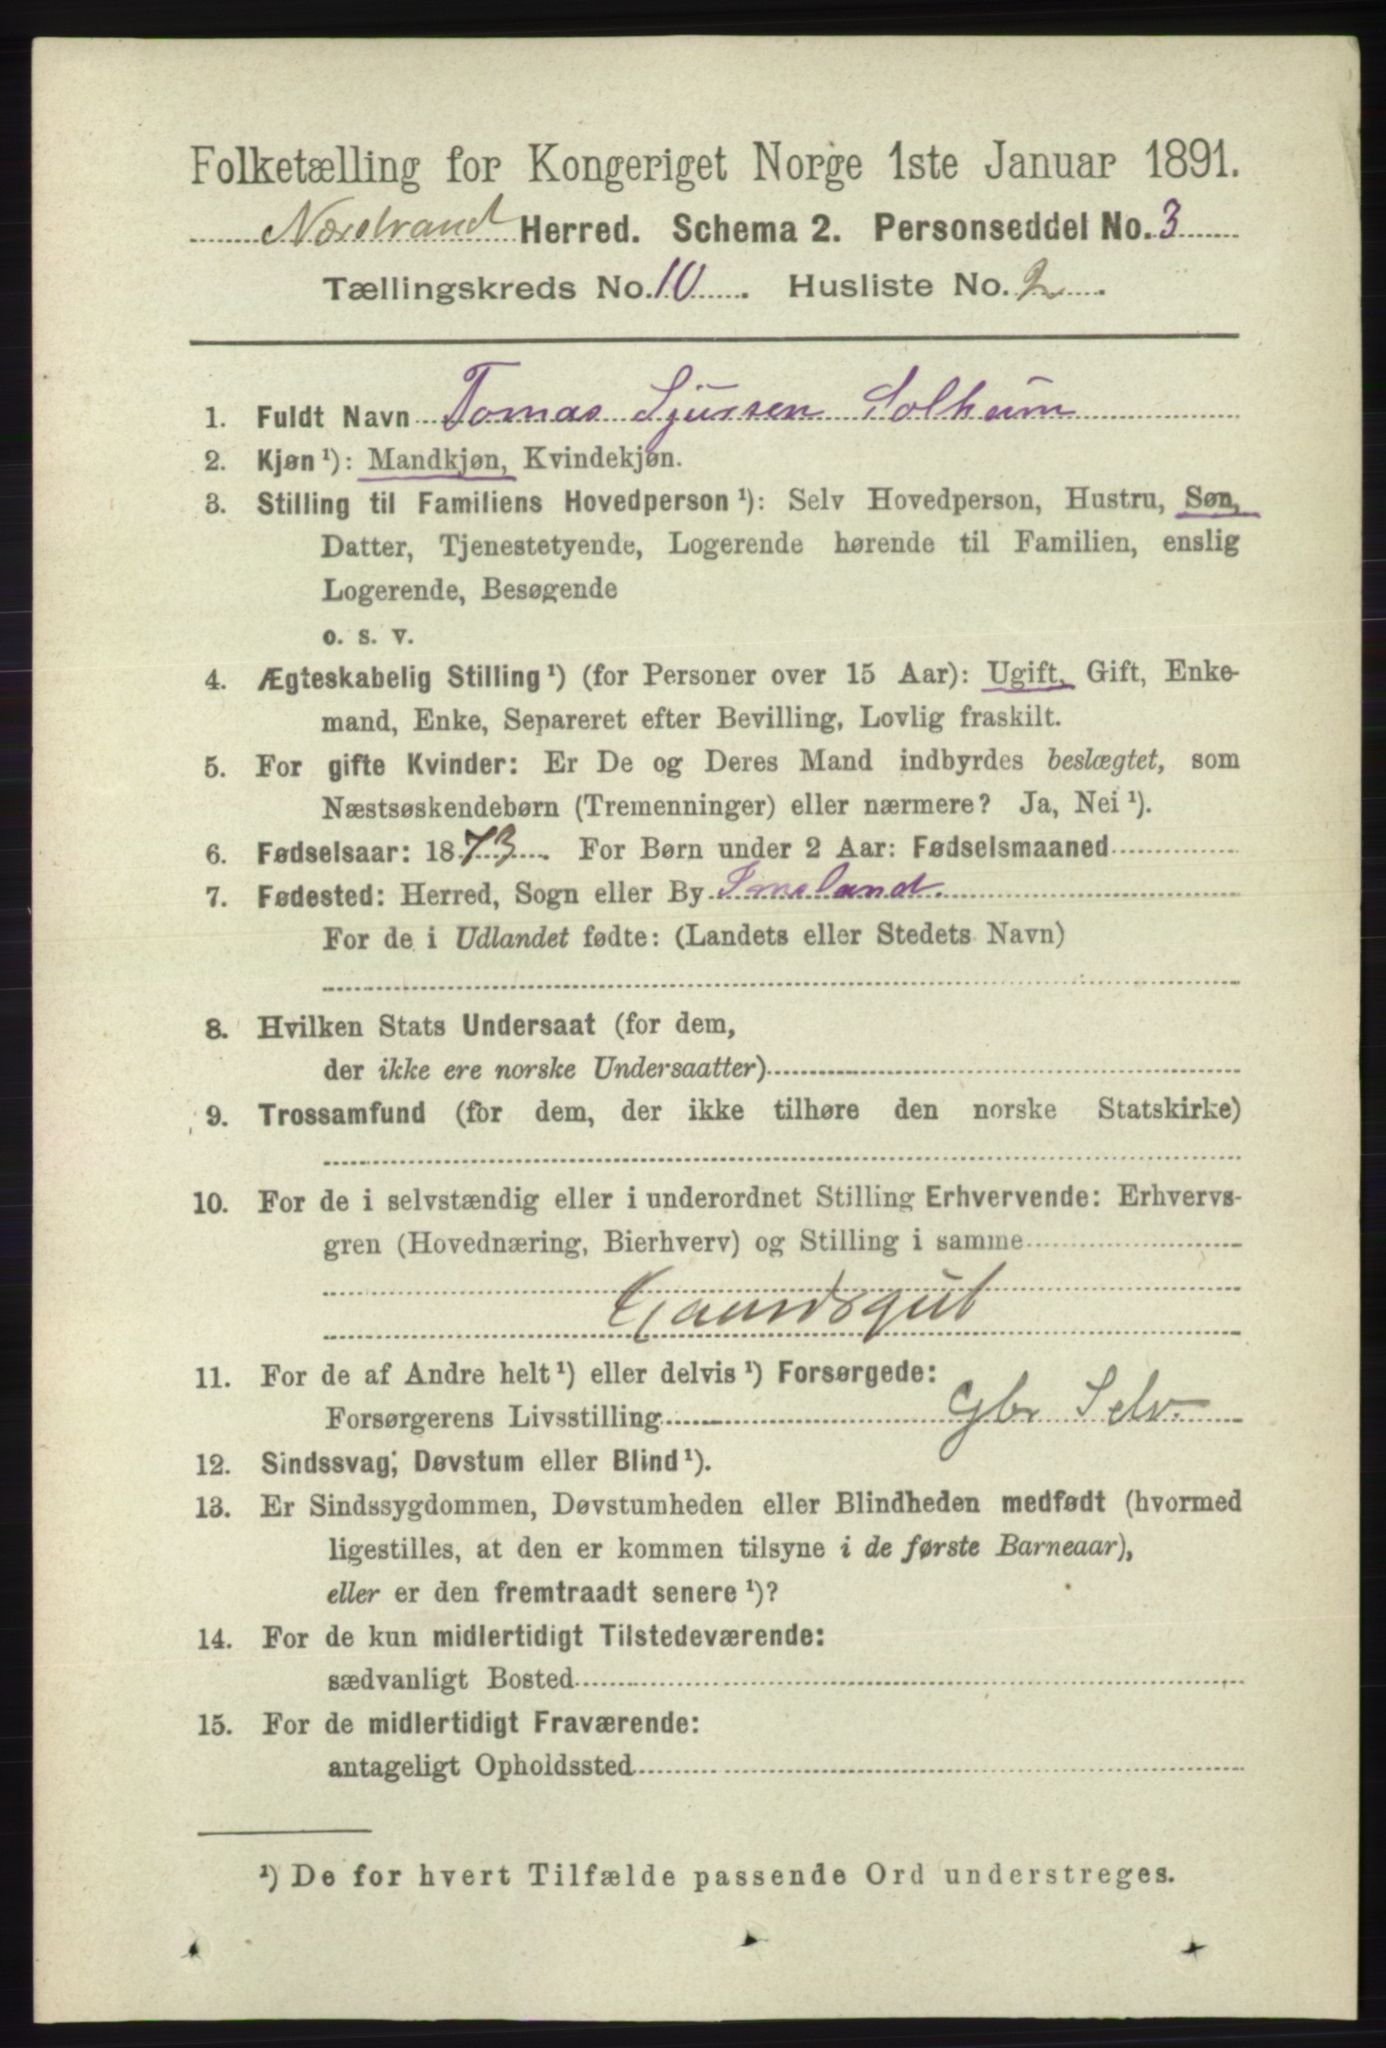 Folketælling for Kongeriget Norge 1ste Januar 1891.
Nærstrand Herred. Schema 2. Personseddel No. 3
Tællingskreds No. 10. Husliste No. 2.
1. Fuldt Navn Tomas Sjursen Solheim
2. Kjøn ¹): Mandkjøn, Kvindekjøn.
3. Stilling til Familiens Hovedperson ¹): Selv Hovedperson, Hustru, Søn,
Datter, Tjenestetyende, Logerende hørende til Familien, enslig
Logerende, Besøgende
o. s. v.
4. Ægteskabelig Stilling ¹) (for Personer over 15 Aar): Ugift, Gift, Enke-
mand, Enke, Separeret efter Bevilling, Lovlig fraskilt.
5. For gifte Kvinder: Er De og Deres Mand indbyrdes beslægtet, som
Næstsøskendebørn (Tremenninger) eller nærmere? Ja, Nei ¹).
6. Fødselsaar: 1873. For Børn under 2 Aar: Fødselsmaaned
7. Fødested: Herred, Sogn eller By Imsland.
For de i Udlandet fødte: (Landets eller Stedets Navn)
8. Hvilken Stats Undersaat (for dem,
der ikke ere norske Undersaatter)
9. Trossamfund (for dem, der ikke tilhøre den norske Statskirke)
10. For de i selvstændig eller i underordnet Stilling Erhvervende: Erhvervs-
gren (Hovednæring, Bierhverv) og Stilling i samme
Gaardsgut
11. For de af Andre helt ¹) eller delvis ¹) Forsørgede:
Forsørgerens Livsstilling Gbr Selv.
12. Sindssvag, Døvstum eller Blind ¹).
13. Er Sindssygdommen, Døvstumheden eller Blindheden medfødt (hvormed
ligestilles, at den er kommen tilsyne i de første Barneaar),
eller er den fremtraadt senere ¹)?
14. For de kun midlertidigt Tilstedeværende:
sædvanligt Bosted
15. For de midlertidigt Fraværende:
antageligt Opholdssted
¹) De for hvert Tilfælde passende Ord understreges.